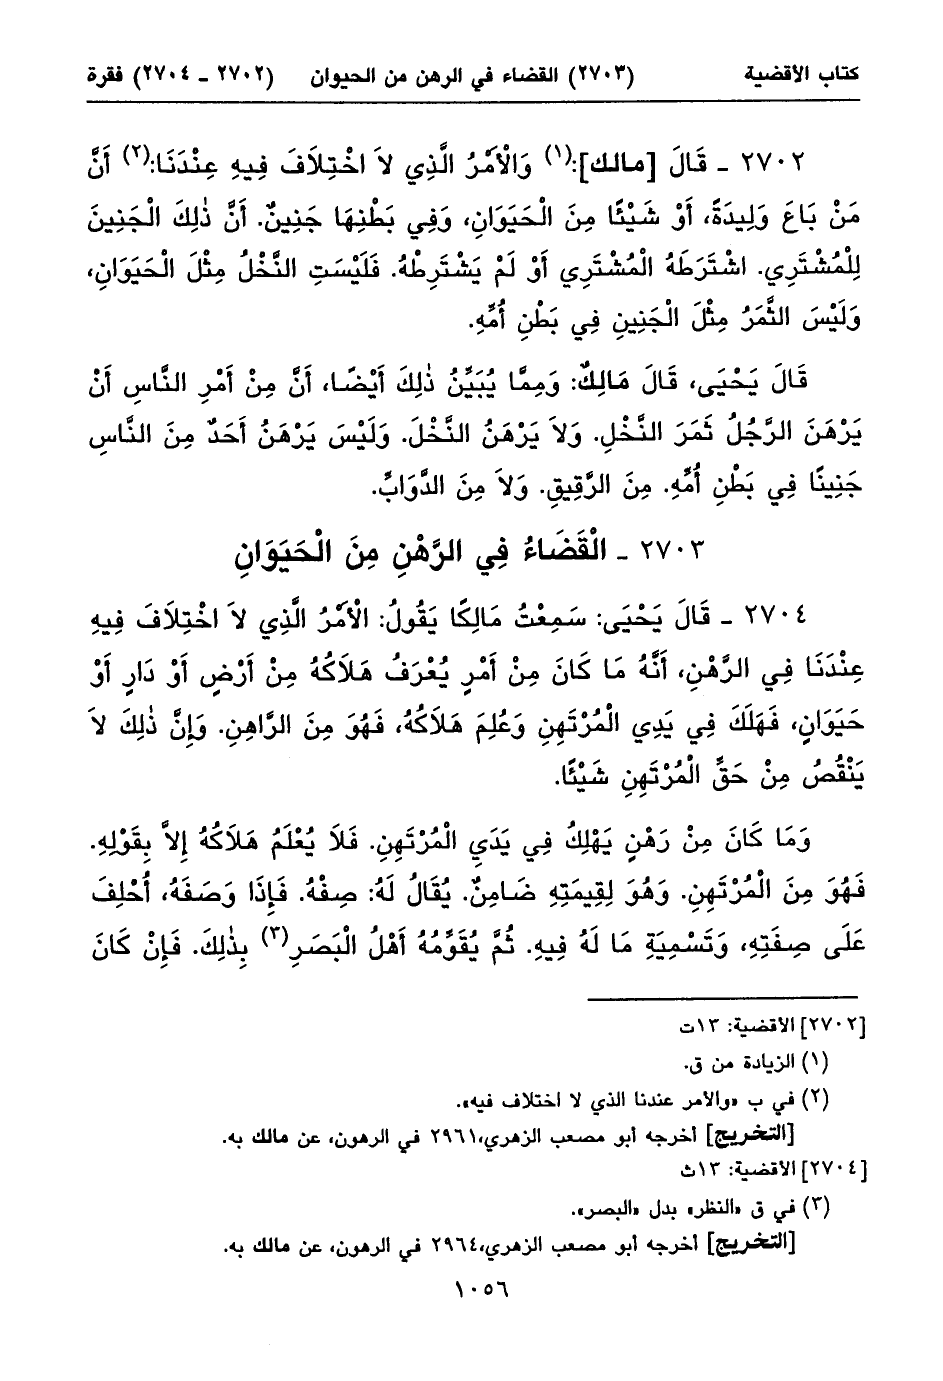 كتاب الأقضية (٢٧٠٣) القضاء في الرهن من الحيوان (٢٧٠٢ - ٢٧٠٤) فقرة
٢٧٠٢ - قَالَ [مالك]:(١) وَالْأَمْرُ الَّذِي لاَ اخْتِلَافَ فِيهِ عِنْدَنَا:(٢) أَنَّ
مَنْ بَاعَ وَلِيدَةً، أَوْ شَيْئًا مِنَ الْحَيَوَانِ، وَفِي بَطْنِهَا جَنِينٌ. أَنَّ ذٰلِكَ الْجَنِينَ
لِلْمُشْتَرِي. اشْتَرَطَهُ الْمُشْتَرِي أَوْ لَمْ يَشْتَرِطْهُ. فَلَيْسَتِ النَّخْلُ مِثْلَ الْحَيَوَانِ،
وَلَيْسَ الثَّمَرُ مِثْلَ الْجَنِينِ فِي بَطْنِ أُمِّهِ.
قَالَ يَحْيَى، قَالَ مَالِكٌ: وَمِمَّا يُبَيِّنُ ذٰلِكَ أَيْضًا، أَنَّ مِنْ أَمْرِ النَّاسِ أَنْ
يَرْهَنَ الرَّجُلُ ثَمَرَ النَّخْلِ. وَلاَ يَرْهَنُ النَّخْلَ. وَلَيْسَ يَرْهَنُ أَحَدٌ مِنَ النَّاسِ
جَنِينًا فِي بَطْنِ أُمِّهِ. مِنَ الرَّقِيقِ. وَلاَ مِنَ الدَّوَابِّ.
٢٧٠٣ - الْقَضَاءُ فِي الرَّهْنِ مِنَ الْحَيَوَانِ
٢٧٠٤ - قَالَ يَحْيَى: سَمِعْتُ مَالِكًا يَقُولُ: الْأَمْرُ الَّذِي لاَ اخْتِلَافَ فِيهِ
عِنْدَنَا فِي الرَّهْنِ، أَنَّهُ مَا كَانَ مِنْ أَمْرٍ يُعْرَفُ هَلَاكُهُ مِنْ أَرْضٍ أَوْ دَارٍ أَوْ
حَيَوَانٍ، فَهَلَكَ فِي يَدِي الْمُرْتَهِنِ وَعُلِمَ هَلَاكُهُ، فَهُوَ مِنَ الرَّاهِنِ. وَإِنَّ ذٰلِكَ لاَ
يَنْقُصُ مِنْ حَقِّ الْمُرْتَهِنِ شَيْئًا.
وَمَا كَانَ مِنْ رَهْنٍ يَهْلِكُ فِي يَدَيِ الْمُرْتَهِنِ. فَلَا يُعْلَمُ هَلَاكُهُ إِلاَّ بِقَوْلِهِ.
فَهُوَ مِنَ الْمُرْتَهِنِ. وَهُوَ لِقِيمَتِهِ ضَامِنٌ. يُقَالُ لَهُ: صِفْهُ. فَإِذَا وَصَفَهُ، أُحْلِفَ
عَلَى صِفَتِهِ، وَتَسْمِيَةِ مَا لَهُ فِيهِ. ثُمَّ يُقَوِّمُهُ أَهْلُ الْبَصَرِ(٣) بِذٰلِكَ. فَإِنْ كَانَ
[٢٧٠٢] الأقضية: ١٣ت
(١) الزيادة من ق.
(٢) في ب «والأمر عندنا الذي لا اختلاف فيه».
[التخريج] أخرجه أبو مصعب الزهري،٢٩٦١ في الرهون، عن مالك به.
[٢٧٠٤] الأقضية: ١٣ث
(٣) في ق «النظر» بدل «البصر».
[التخريج] أخرجه أبو مصعب الزهري،٢٩٦٤ في الرهون، عن مالك به.
١٠٥٦